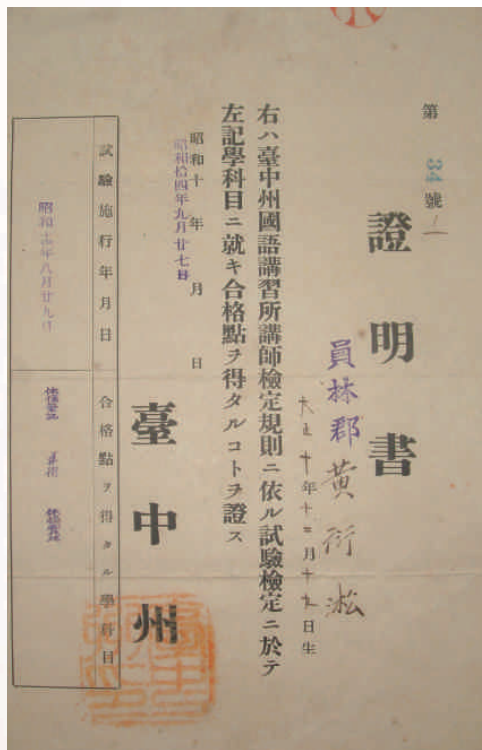 第34號
證明書
員林郡 黃衍淞
大正十年十二月十九日生
右ハ臺中州國語講習所講師檢定規則ニ依ル試驗檢定ニ於テ
左記學科目ニ就キ合格點ヲ得タルコトヲ證ス
昭和十年 月 日
昭和拾四年九月廿七日
臺中州
試驗施行年月日 合格點ヲ得タル學科目